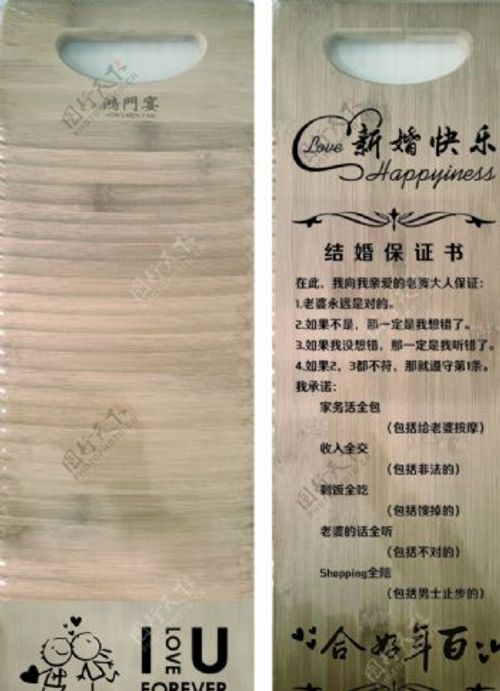 鸿門宴
HONG MEN YAN
I LOVE U
FOREVER
Love
新婚快乐
Happyiness
结婚保证书
在此，我向我亲爱的老婆大人保证：
1.老婆永远是对的。
2.如果不是，那一定是我想错了。
3.如果我没想错，那一定是我听错了。
4.如果2，3都不符，那就遵守第1条。
我承诺：
家务活全包
（包括给老婆按摩）
收入全交
（包括非法的）
剩饭全吃
（包括馊掉的）
老婆的话全听
（包括不对的）
Shopping全陪
（包括男士止步的）
合好年百